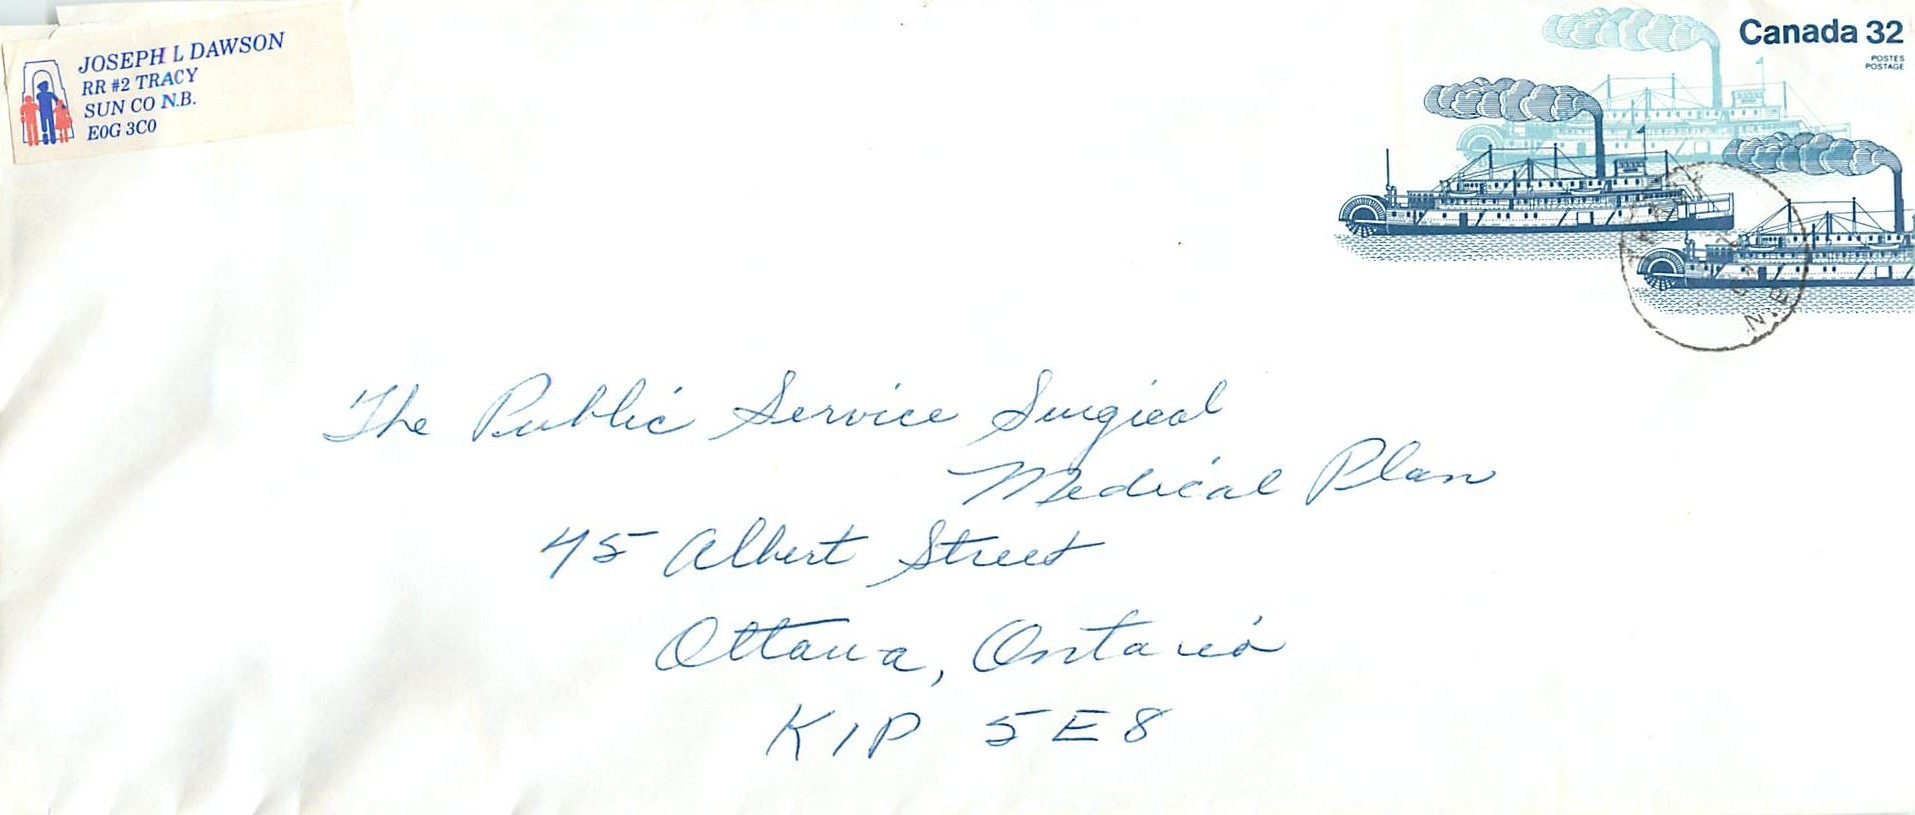 JOSEPH L DAWSON
RR #2 TRACY
SUN CO N.B.
E0G 3C0
Canada 32
POSTES
POSTAGE
N.B.
The Public Service Surgical
Medical Plan
45 Albert Street
Ottawa, Ontario
K1P 5E8